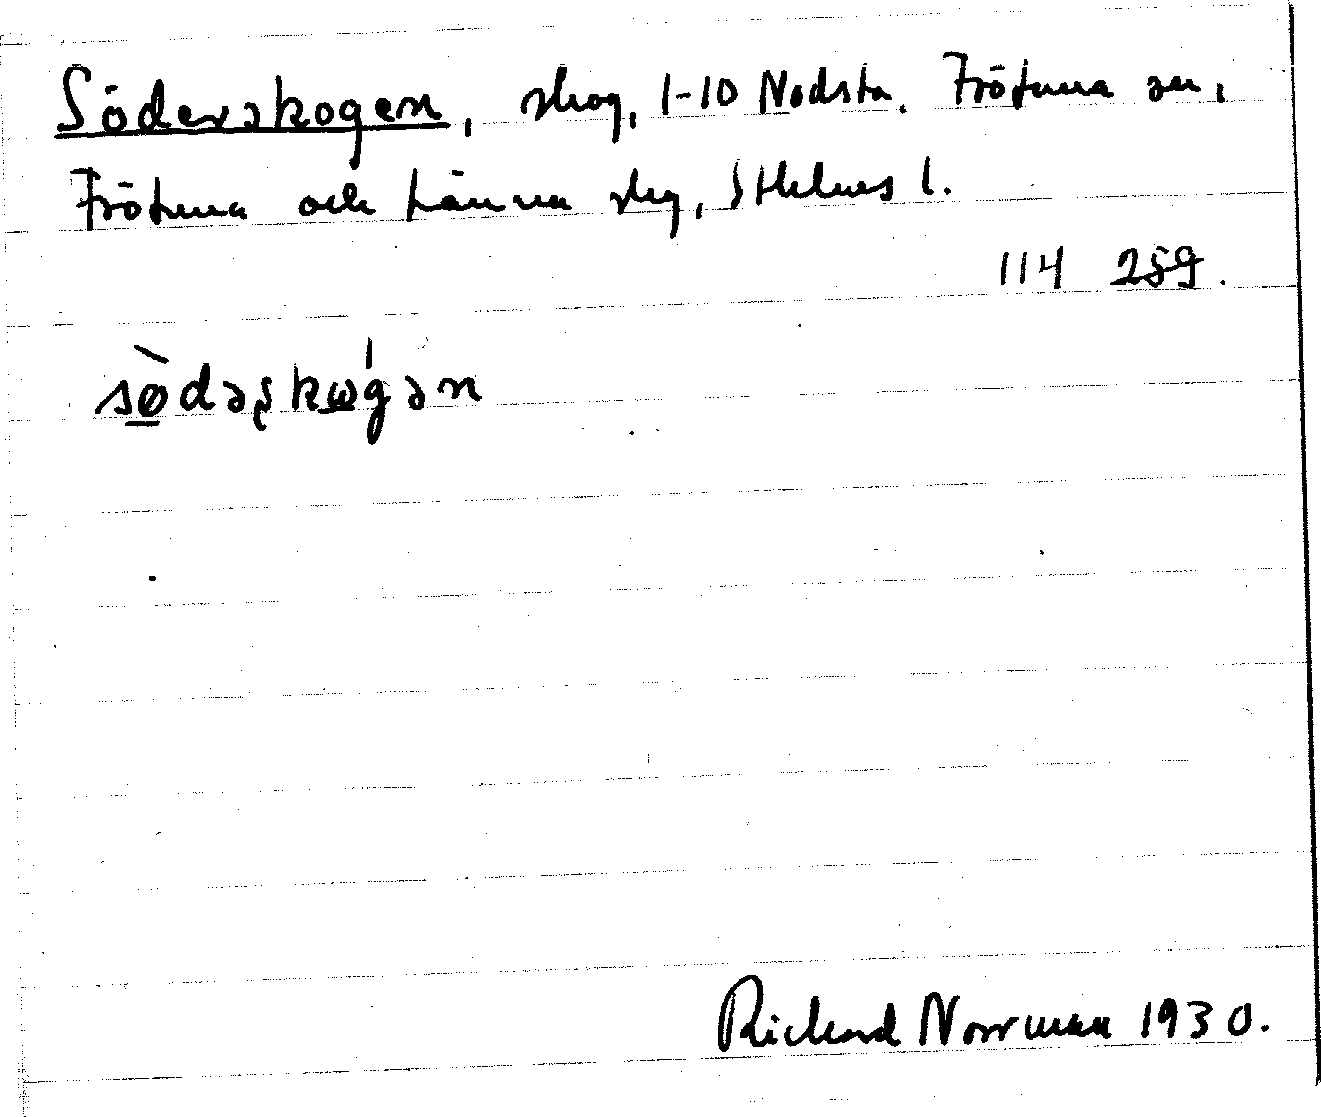 Söderskogen, skog, 1-10 Nodsta. Frötuna sn,
Frötuna och Länna skg, Sthlms l.
114 259.
sø̀dəʂkωgən
Richard Norrman 1930.